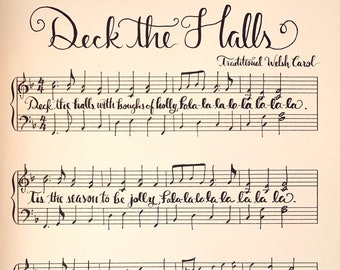 Deck the Halls
Traditional Welsh Carol
Deck the halls with boughs of holly, Fala-la-la-la-la la-la-la.
'Tis the season to be jolly, Fa-la-la-la-la-la la la la.